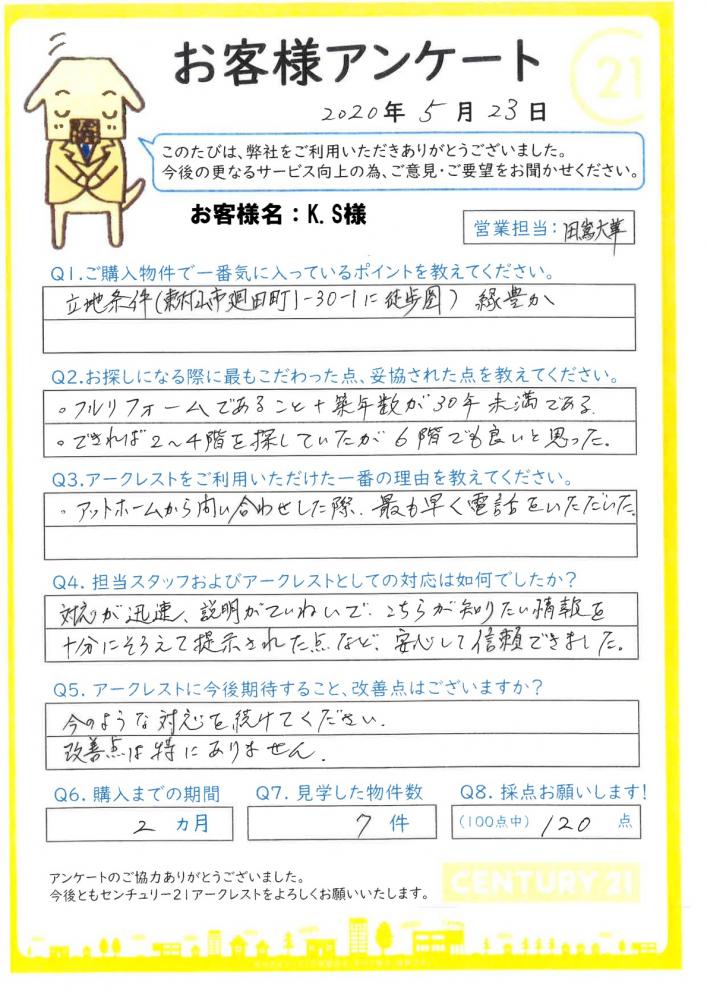 お客様アンケート
21
2020年 5月 23日
このたびは、弊社をご利用いただきありがとうございました。
今後の更なるサービス向上の為、ご意見・ご要望をお聞かせください。
お客様名：K.S様
営業担当：田嶌大華
Q1.ご購入物件で一番気に入っているポイントを教えてください。
立地条件(東村山市廻田町1-30-1に徒歩圏) 緑豊か
Q2.お探しになる際に最もこだわった点、妥協された点を教えてください。
。フルリフォームであること+築年数が30年未満である.
。できれば2〜4階を探していたが6階でも良いと思った.
Q3.アークレストをご利用いただけた一番の理由を教えてください。
。アットホームから問い合わせした際、最も早く電話をいただいた.
Q4. 担当スタッフおよびアークレストとしての対応は如何でしたか?
対応が迅速、説明がていねいで、こちらが知りたい情報を
十分にそろえて提示された点など、安心して信頼できました。
Q5. アークレストに今後期待すること、改善点はございますか?
今のような対応を続けてください.
改善点は特にありません.
Q6. 購入までの期間 Q7. 見学した物件数 Q8. 採点お願いします!
2 カ月 7 件 (100点中) 120 点
アンケートのご協力ありがとうございました。
今後ともセンチュリー21アークレストをよろしくお願いいたします。
CENTURY 21